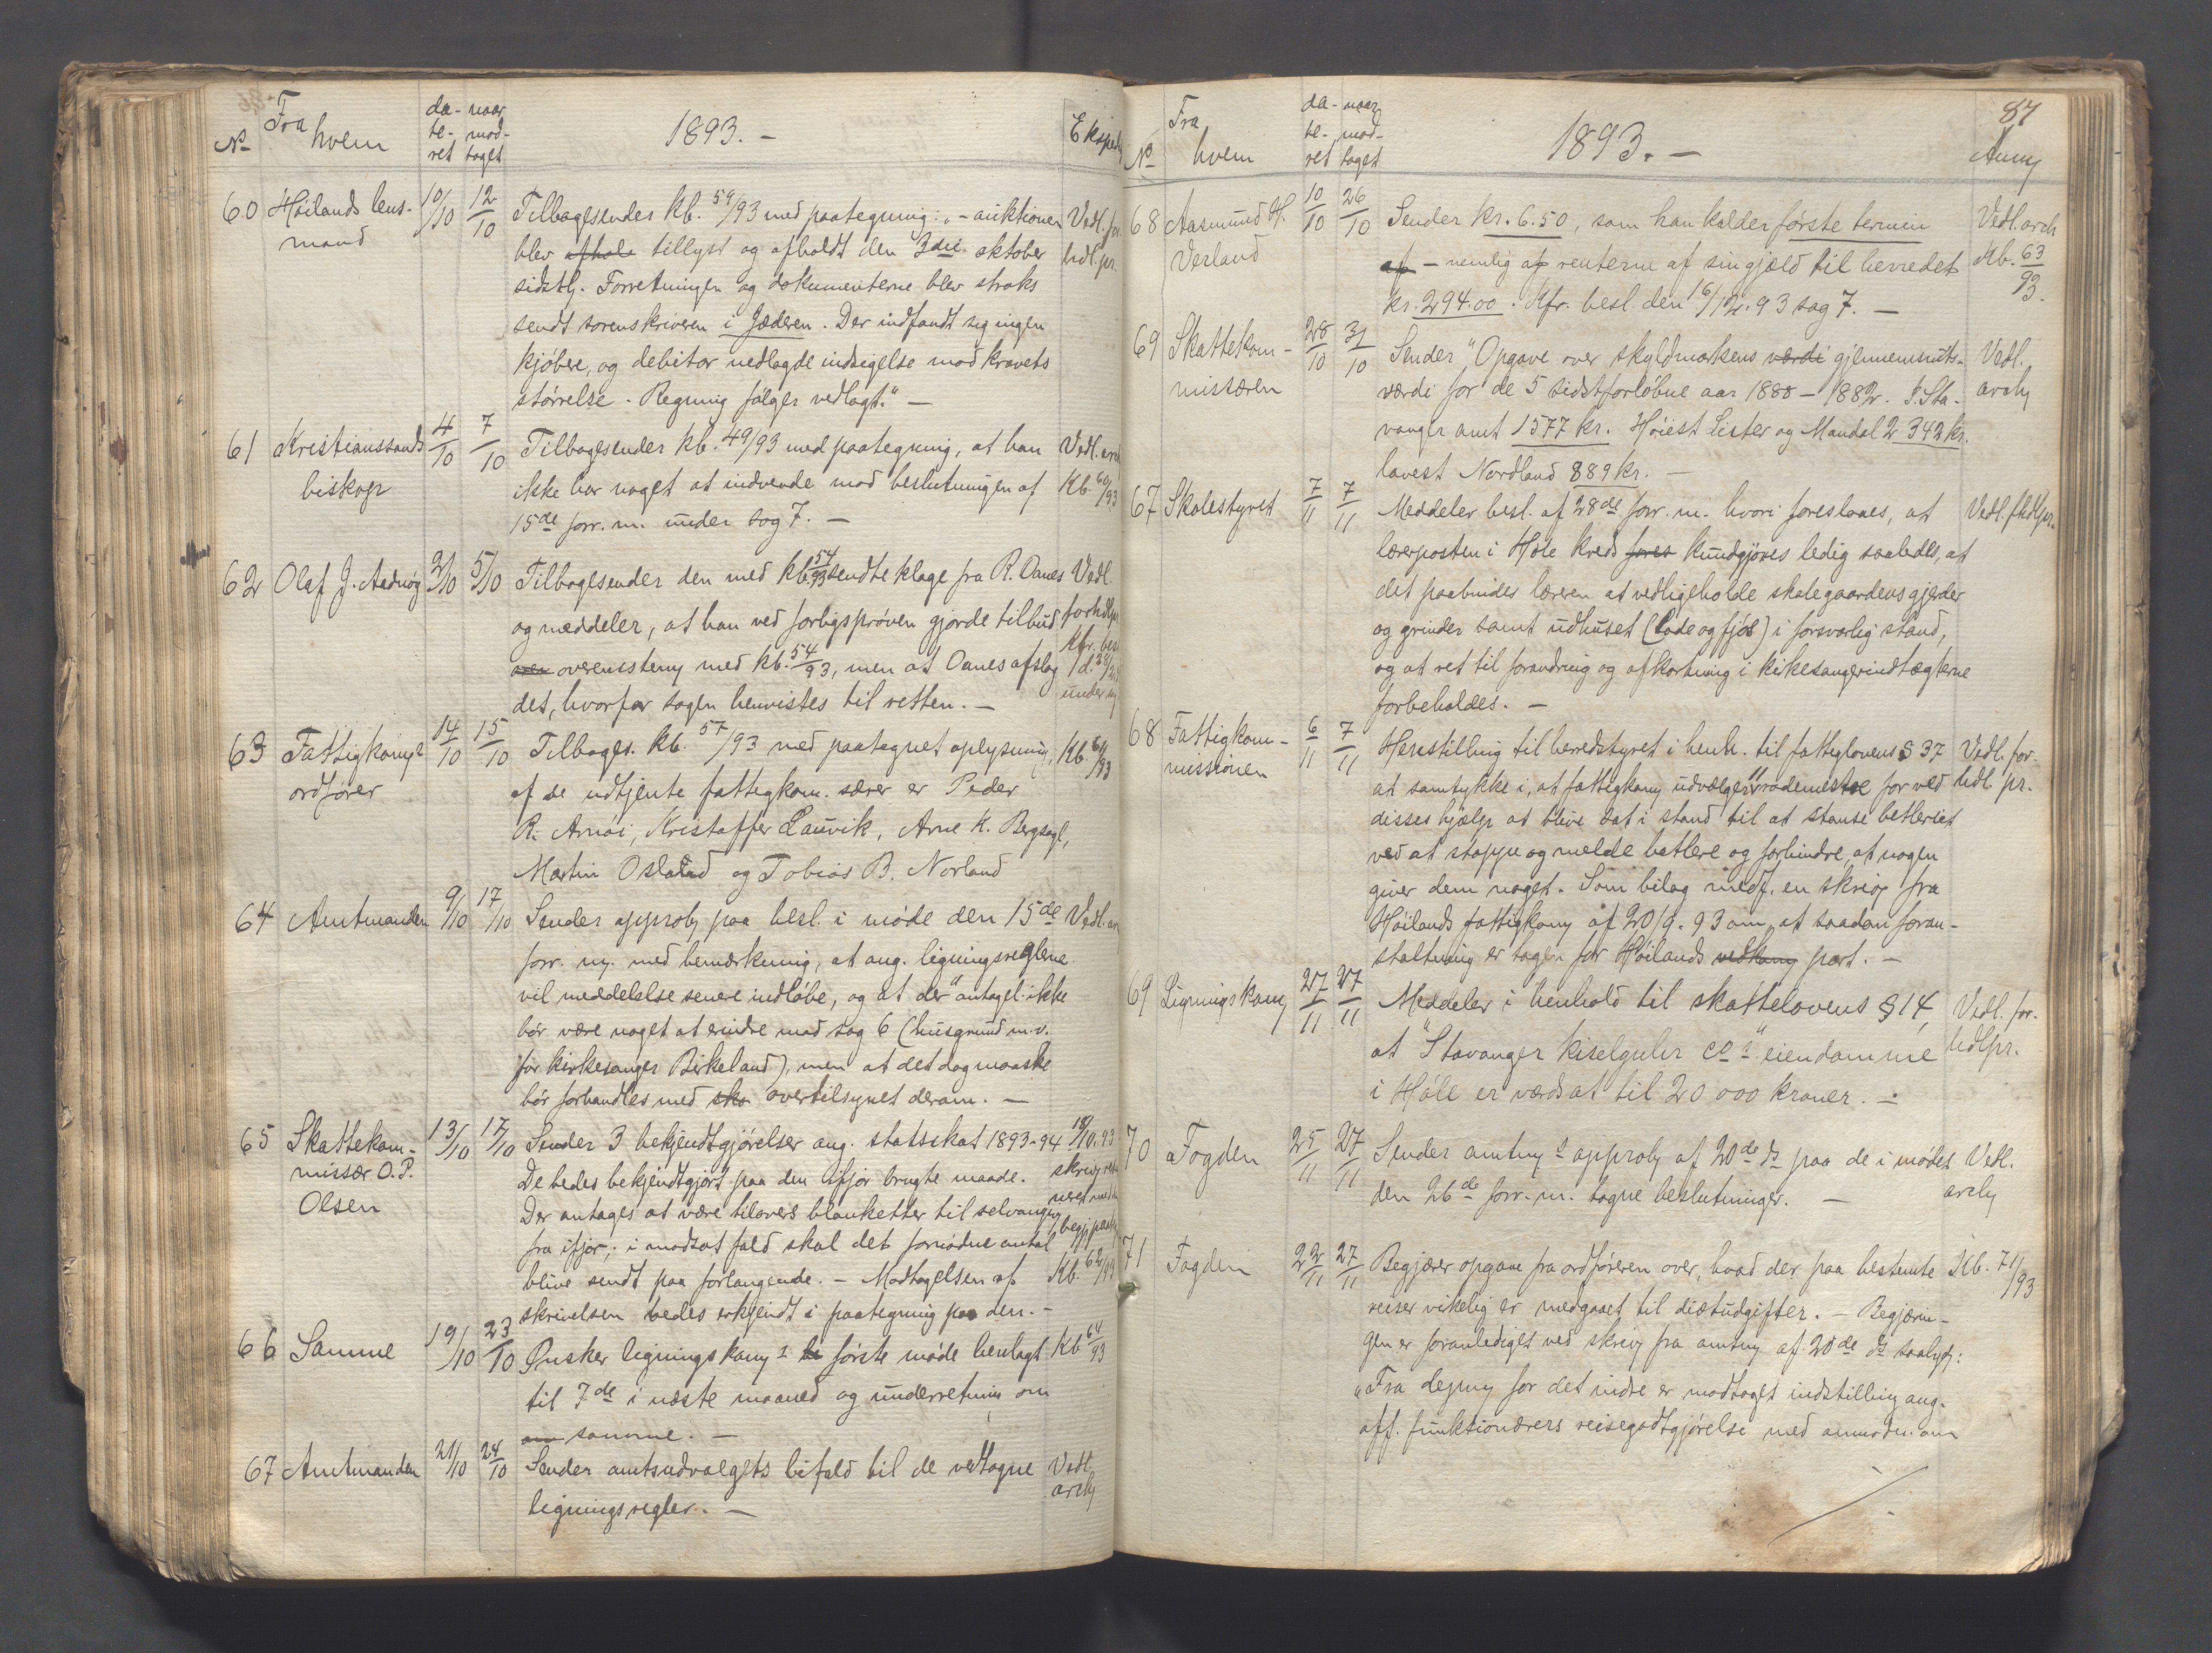 No Fra hvem da-te-ret naar mod-taget 1893. - Eksped
60 Höilands lens-mand 10/10 12/10 Tilbagesender kb. 59/93 med paategning: „- auktionen Vedl. for
blev afhole tillyst og afholdt den 3die oktober hdl.pr.
sidstl. Forretningen og dokumenterne blev straks
sendt sorenskriveren i Jæderen. Der indfandt sig ingen
kjöbere, og debitor nedlagde indsigelse mod kravets
störrelse. Regning fölger vedlagt." -
61 Kristianssands biskop 4/10 7/10 Tilbagesender kb. 49/93 med paategning, at han Vedl. arch
ikke har noget at indvende mod beslutningen af Kb. 60/93
15de forr. m. under sag 7. -
62 Olaf J. Aadnöy 2/10 5/10 Tilbagesender den med kb. 54/93 sendte klage fra R. Oanes Vedl.
og meddeler, at han ved forligspröven gjorde tilbud forhdlpr
over overensstem med kb. 54/93, men at Oanes afslog Kfr. besl.
det, hvorfor sagen henvistes til retten. - under sag
63 Fattigkoms ordförer 14/10 15/10 Tilbages. kb. 57/93 med paategnet oplysning, Kb. 61/93
af de udtjente fattigkom. særer er Peder
R. Arnöi, Kristoffer Lauvik, Arne K. Bergsagl,
Martin Osland og Tobias B. Norland
64 Amtmanden 9/10 17/10 Sender approb paa besl. i möde den 15de Vedl. ar
forr. m. med bemærkning, at ang. ligningsreglene
vil meddelelse senere indlöbe, og at der antagel. ikke
bör være noget at erindre mod sag 6 (husgrund m.v.
for kirkesanger Birkeland), men at det dog maaske
bör forhandles med sko overtilsynet derom. -
65 Skattekom-missær O.P. Olsen 13/10 17/10 Sender 3 bekjendtgjörelser ang. statsskat 1893-94 18/10.93
De bedes bekjendtgjort paa den ifjor brugte maade.
Der antages at være tilovers blanketter til selvangiv
fra ifjor; i modsat fald skal det fornödne antal
blive sendt paa forlangende. - Modtagelsen af Kb. 62/93
skrivelsen bedes erkjendt i paategning paa den. -
66 Samme 19/10 23/10 Önsker ligningskoms förste möde henlagt Kb 64/93
til 7de i næste maaned og underretning om
om samme. -
67 Amtmanden 21/10 24/10 Sender amtsudvalgets bifald til de vedtagne Vedl.
ligningsregler. - arch
87
No Fra hvem da-te-ret naar mod-taget 1893. - Anm
68 Aasmund H. Verland 10/10 26/10 Sender kr. 6.50, som han kalder förste termin Vedl. arch
af - nemlig af renterne af sin gjæld til herredet Kb. 63/93.
kr. 294.00. Kfr. besl. den 16/12.93 sag 7. -
69 Skattekom-missæren 28/10 31/10 Sender "Opgave over skyldmarkens værdi gjennemsnits- Vedl.
værdi for de 5 sidstforlöbne aar 1888 - 1892. I Sta- arch
vanger amt 1577 kr. Höiest Lister og Mandal 2342 kr.
lavest Nordland 889 kr. -
67 Skolestyret 7/11 7/11 Meddeler besl. af 28de forr. m. hvori foreslaaes, at Vedl. fhdlpr.
lærerposten i Höle kreds fores kundgjöres ledig saaledes, at
det paabindes læreren at vedligeholde skolegaardens gjerder
og grinder samt udhuset (löde og fjös) i forsvarlig stand,
og at ret til forandring og afkortning i kirkesangerindtægterne
forbeholdes. -
68 Fattigkom-missionen 6/11 7/11 Henstilling til herredstyret i henh. til fattiglovens § 37 Vedl. for-
at samtykke i, at fattigkom udvælger "rodemestre for ved hdl. pr.
disses hjælp at blive sat i stand til at stanse betleriet
ved at stoppe og melde betlere og forhindre, at nogen
giver dem noget. Som bilag medf. en skriv fra
Höilands fattigkom af 20/9.93 om, at saadan foran-
staltning er tagen for Höilands vedkom part. -
69 Ligningskom 27/11 27/11 Meddeler i henhold til skattelovens § 14, Vedl. for-
at "Stavanger kiselguhr cos" eiendomme hdlpr.
i Höle er værdsat til 20 000 kroner. -
70 Fogden 25/11 27/11 Sender amtms approb af 20de ds paa de i mödet Vedl.
den 26de forr. m. tagne beslutninger. - arch
71 Fogden 22/11 27/11 Begjærer opgave fra ordföreren over, hvad der paa bestemte Kb. 71/93
reiser virkelig er medgaaet til diætudgifter. - Begjærin-
gen er foranlediget ved skriv fra amtm af 20de ds saalyd:
„Fra depm for det indre er modtaget indstilling ang.
off. funktionærers reisegodtgjörelse med anmodn. om